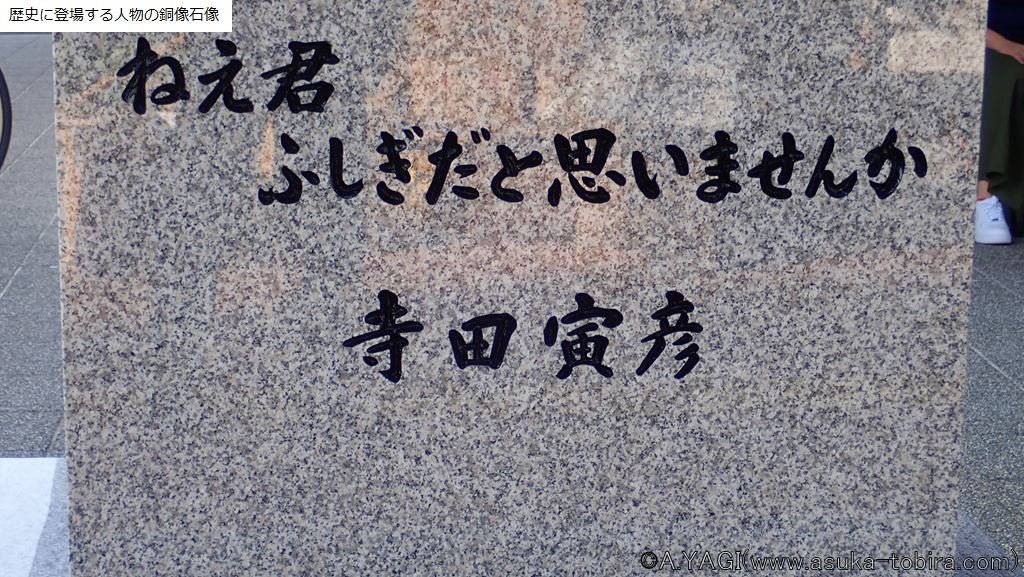 歴史に登場する人物の銅像石像
ねえ君
ふしぎだと思いませんか
寺田寅彦
©A.YAGI(www.asuka-tobira.com)